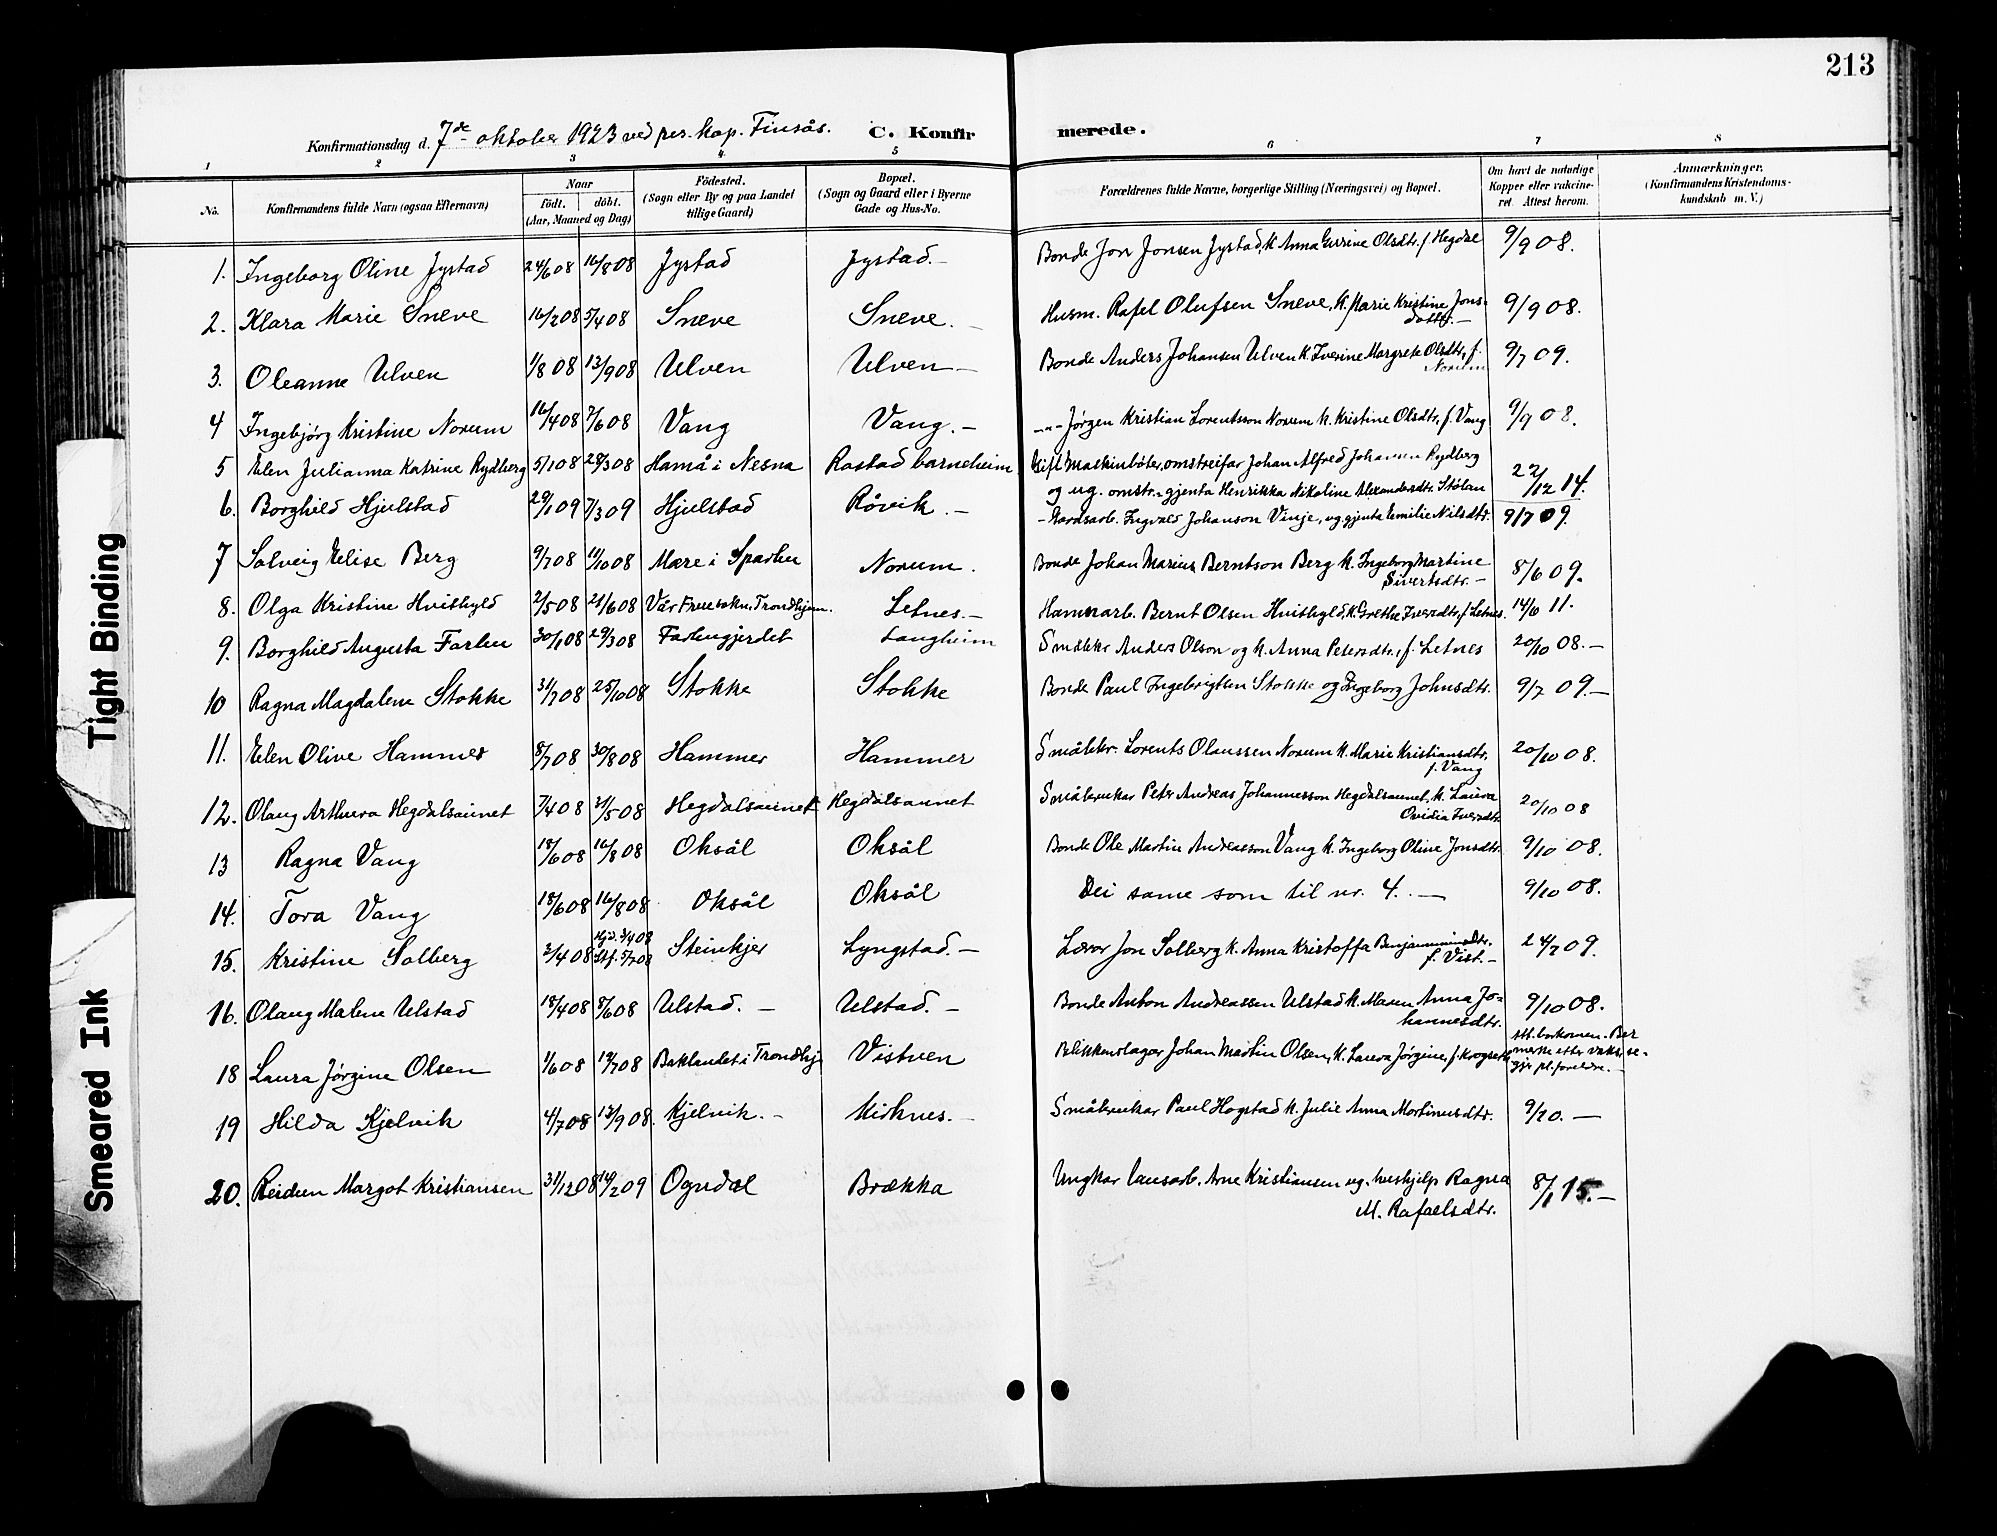 213
Konfirmationsdag d. 7de oktober 1923 ved pers. kap. Finsås. C. Konfirmerede.
1 2 3 4 5 6 7 8
No. Konfirmandens fulde Navn (ogsaa Efternavn) Naar født. døbt. (Aar, Maaned og Dag) Fødested. (Sogn eller By og paa Landet tillige Gaard) Bopæl. (Sogn og Gaard eller i Byerne Gade og Hus-No. Forældrenes fulde Navne, borgerlige Stilling (Næringsvei) og Bopæl. Om havt de naturlige Kopper eller vaccineret. Attest herom. Anmærkninger. (Konfirmandens Kristendomskundskab m. V.)
1. Ingeborg Oline Jystad 24/6 08 16/8 08 Jystad Jystad.- Bonde Jon Jonsen Jystad, k. Anna Gurine Olsdtr. f. Hegdal 9/9 08.
2. Klara Marie Sneve 16/2 08 5/4 08 Sneve Sneve.- Husm. Rafel Olufsen Sneve, k. Marie Kristine Jons-
dottr.-
9/9 08.
3. Oleanne Ulven 1/8 08 13/9 08 Ulven Ulven- Bonde Anders Johansen Ulven k. Iverine Margrete Olsdtr., f.
Norum
9/7 09.
4 Ingebjørg Kristine Norum 16/4 08 7/6 08 Vang Vang.- -"- Jørgen Kristian Lorentsson Norum k. Kristine Olsdtr., f. Vang 9/9 08.
5 Elen Julianna Katrine Rydberg 5/1 08 28/3 08 Hamå i Nesna Rostad barneheim Gift Maskinbøter, omstreifar Johan Alfred Johansen Rydberg
og ug. omstr.-gjenta Henrikka Nikoline Alexandersdtr. Stólan
22/12 14.
6. Borghild Hjulstad 29/1 09 7/3 09 Hjulstad Røvik.- -Gardsarb. Ingvald Johanson Vinje, ug. gjenta Emilie Nilsdtr. 9/7 09.
7 Solveig Elise Berg 9/7 08 11/10 08 Mære i Sparbu Norum. Bonde Johan Marius Berntson Berg k. Ingeborg Martine
Sivertsdtr.-
8/6 09.
8. Olga Kristine Hvithyld 2/5 08 21/6 08 Vår Frue sokn, Trondhjem. Letnes.- Hamnarb. Bernt Olsen Hvithyld, k. Grethe Iversdtr., f. Letnes. 14/6 11.
9. Borghild Augusta Farbu 30/1 08 29/3 08 Farbugjerdet Langheim Småbkr Anders Olson og k. Anna Petersdtr., f. Letnes 20/10 08.-
10 Ragna Magdalene Stokke 31/7 08 25/10 08 Stokke Stokke Bonde Paul Ingebrigtsen Stokke og Ingeborg Johnsdtr. 9/7 09.-
11. Elen Olive Hammer 8/7 08 30/8 08 Hammer Hammer Småbkr. Lorents Olaussen Norum k. Marie Kristiansdtr.
f. Vang
20/10 08.
12. Olaug Arthura Hegdalsaunet 7/4 08 31/5 08 Hegdalsaunet Hegdalsaunet Småbrukar Peter Andreas Johannesson Hegdalsaunet, k. Laura
Ovidia Iversdtr.
20/10 08
13 Ragna Vang 18/6 08 16/8 08 Oksål Oksål Bonde Ole Martin Andreasson Vang k. Ingeborg Oline Jonsdtr. 9/10 08.
14. Tora Vang 18/6 08 16/8 08 Oksål Oksål Dei same som til nr. 4.- 9/10 08.
15. Kristine Solberg 3/4 08 Hjd. 3/4 08
Stf. 5/7 08
Steinkjer Lyngstad.- Lærar Jon Solberg k. Anna Kristoffa Benjaminsdtr.
f. Vist.-
24/7 09.
16. Olaug Malene Ulstad 18/4 08 8/6 08 Ulstad.- Ulstad.- Bonde Anton Andreassen Ulstad k. Maren Anna Jo-
hannesdtr.
9/10 08.
18 Laura Jørgine Olsen 1/6 08 19/7 08 Baklandet i Trondhj. Vistven Blikkenslagar Johan Martin Olsen, k. Laura Jørgine, f. Krogseth att. bortkomen. Ber
merke etter vaks. se-
gjr pl. foreldre.-
19 Hilda Kjelvik 4/7 08 13/9 08. Kjelvik.- Kirknes.- Småbrukar Paul Hogstad k. Julie Anna Mortinusdtr. 9/10.-
20. Reidun Margot Kristiansen 31/12 08 14/2 09 Ogndal Brækka Ungkar lausarb. Arne Kristiansen ug. hushjelp Ragna
M. Rafaelsdtr.
8/1 15.-
Tight Binding
Smeared Ink